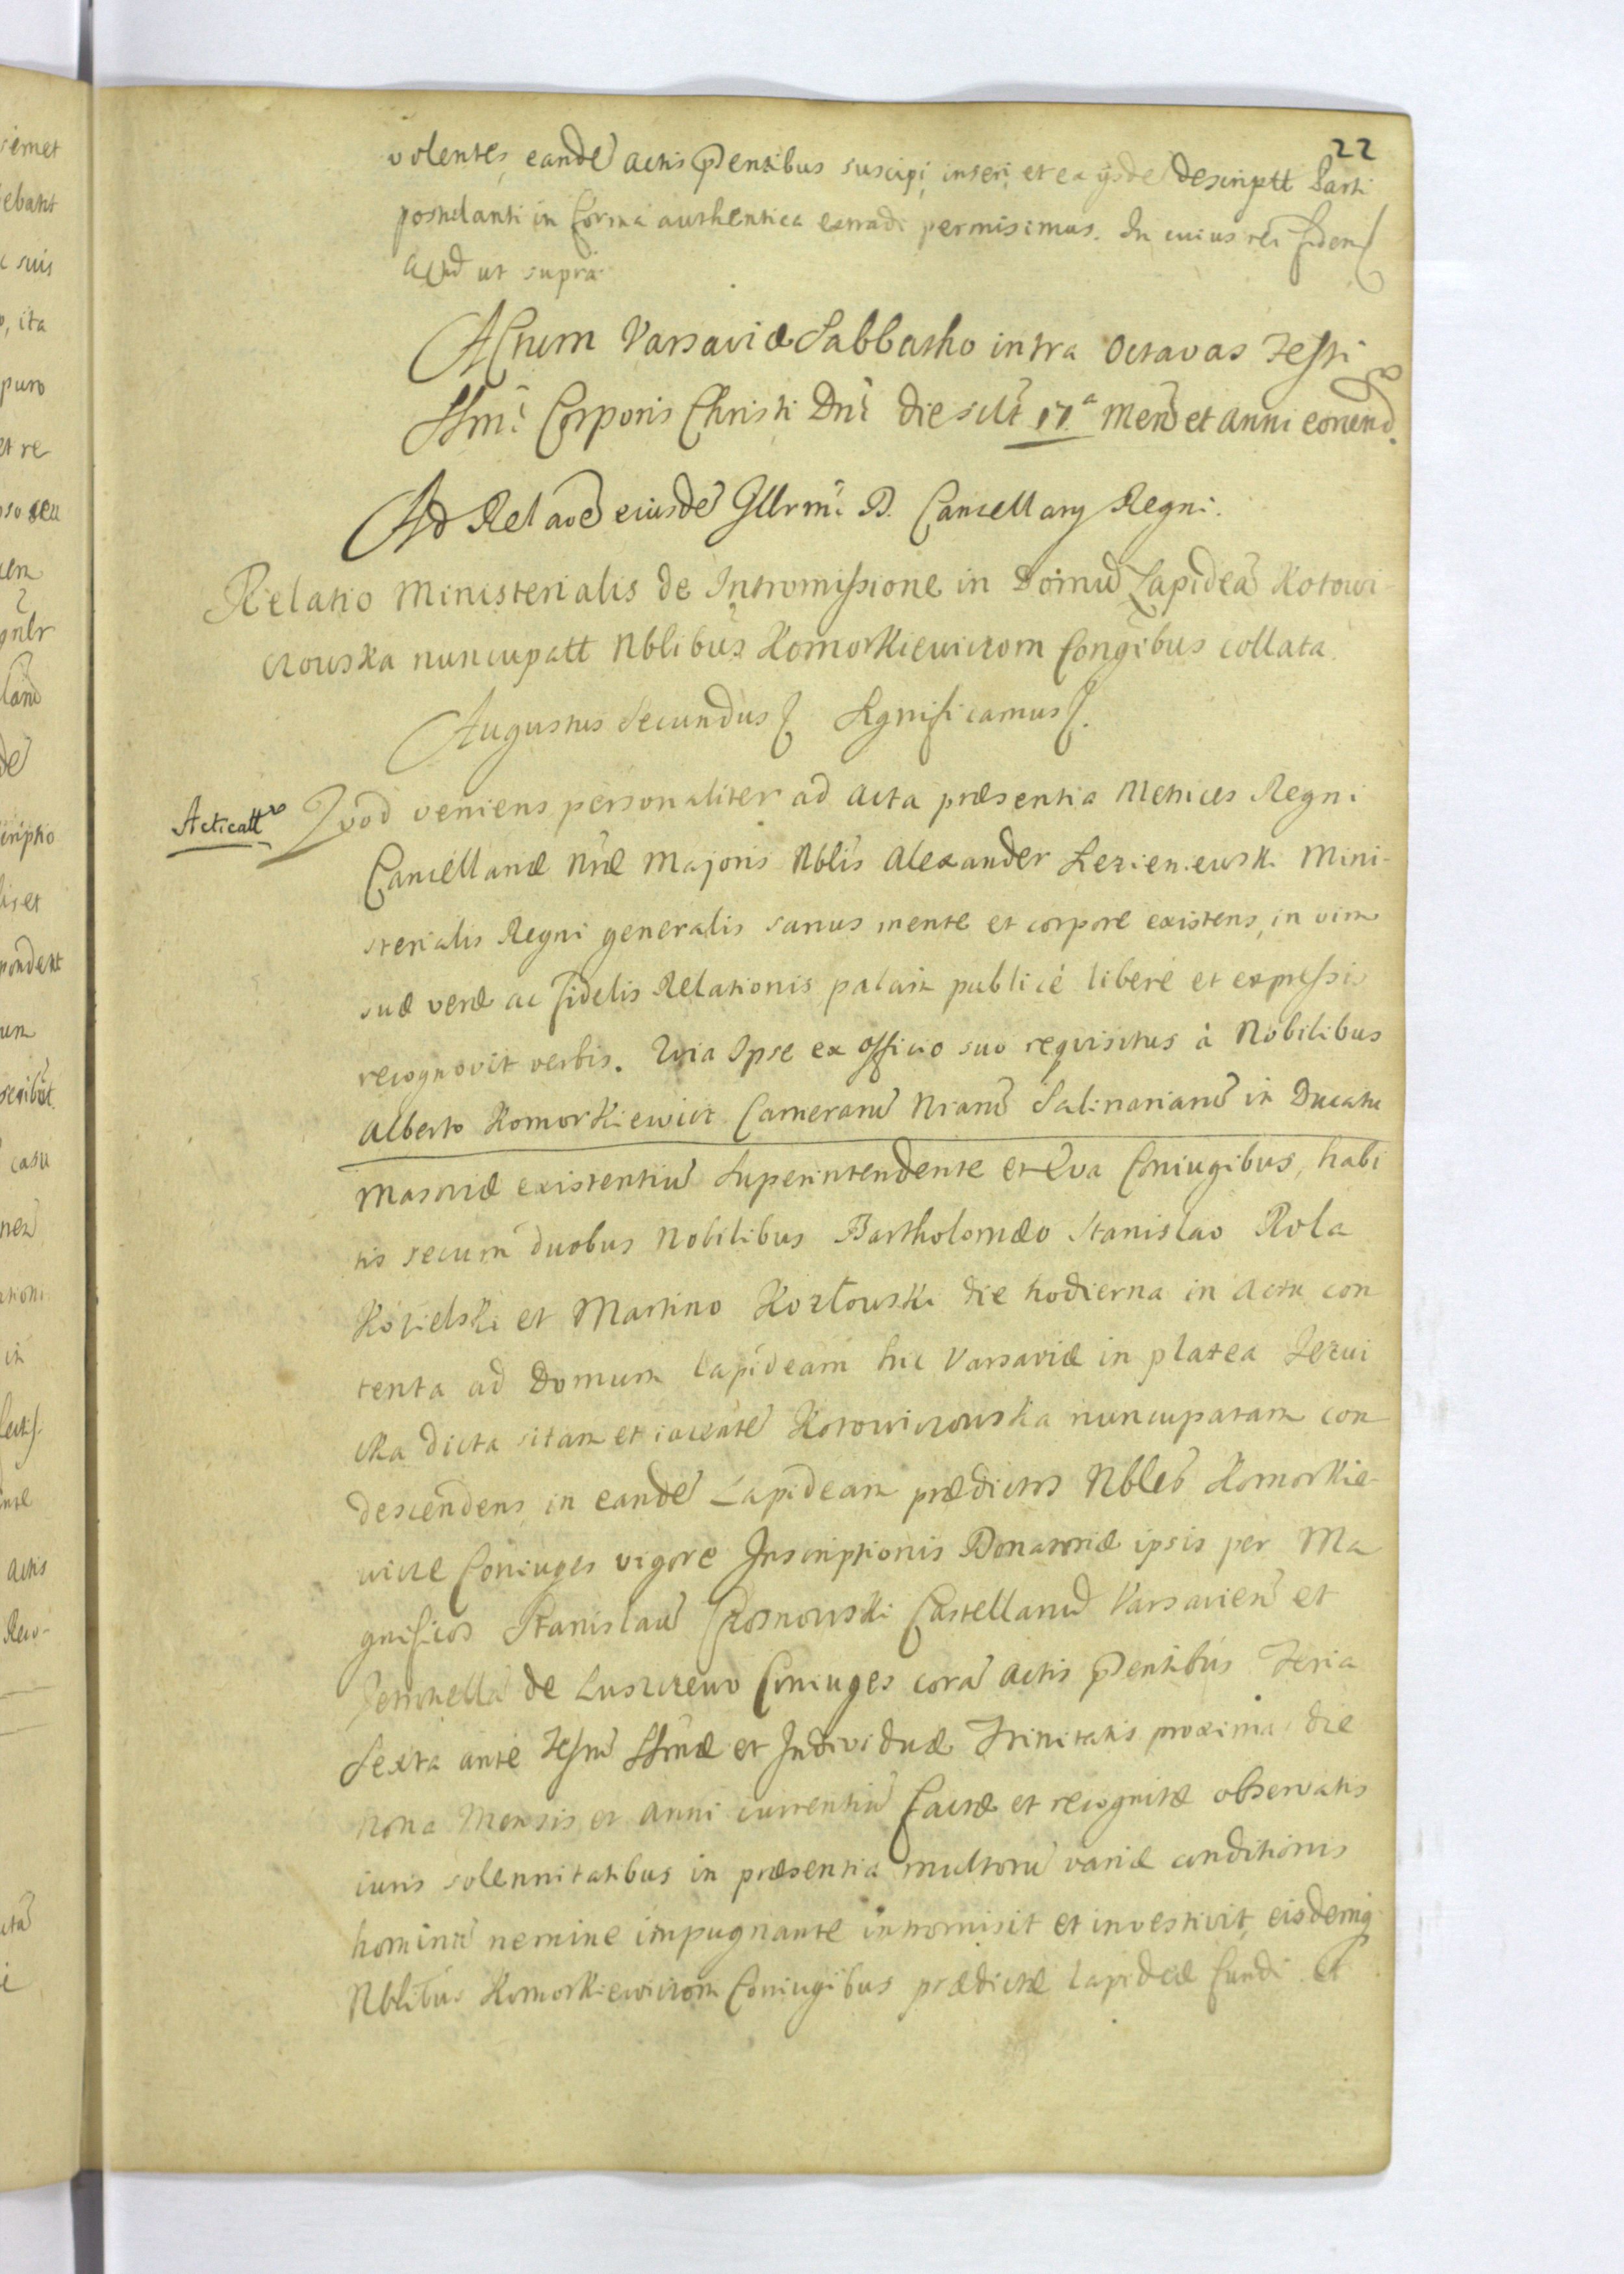 22
volentes, eandē actis pñtibus suscipi, inseri, et ex ijsdē descriptt Parti
postulanti in forma authentica extradi permisimus. In cuius rei fidem
Actū ut supra.
Actum Varsaviæ Sabbatho intra Octavas Festi
Ssmi Corporis Christi Dni die sclt 17ª Mens et Anni eorund.
Ad Relaōē eiusdē Illrmi D. Cancellarÿ Regni.
Relatio Ministerialis de Intromissione in Domū Lapideā Kotowi-
czowska nuncupatt Nblibus Komorkiewiczom Coniugibus collata.
Augustus Secundus Significamus
Acticatt
Quod veniens personaliter ad Acta præsentia Metrices Regni
Cancellariæ Nræ Majoris Nblis Alexander Mini-
sterialis Regni generalis sanus mente et corpore existens, in vim
suæ veræ ac fidelis Relationis palam publicè liberè et expressis
recognovit verbis. Quia Ipse ex officio suo requisitus à Nobilibus
Alberto Komorkiewicz Camerarū Nrarū Salinariarū in Ducatu
Masoviæ existentiū Superintendente et Eva Coniugibus, habi
tis secum duobus Nobilibus Bartholomæo Stanislao Rola
Kozielski et Martino Kozłowski die hodierna in Actu con
tenta ad Domum lapideam hic Varsaviæ in platea Jezui
cka dicta sitam et iacentē Kotowiczowska nuncupatam con
descendens, in eandē Lapideam prædictos Nbles Komorkie-
wicze Coniuges vigore Inscriptionis Donatoriæ ipsis per Ma
gnificos Stanislaū Castellanū Varsavien et
de Luszczewo Coniuges corā Actis pñtibus Feria
Sexta ante Festū Ssmæ et Individuæ Trinitatis proxima die
nona Mensis et Anni currentiū factæ et recognitæ observatis
iuris solennitatibus in præsentia multorū variæ conditionis
hominū nemine impugnante intromisit et investivit, eisdemq
Nblibus Komorkiewiczom Coniugibus prædictæ lapideæ fundi et